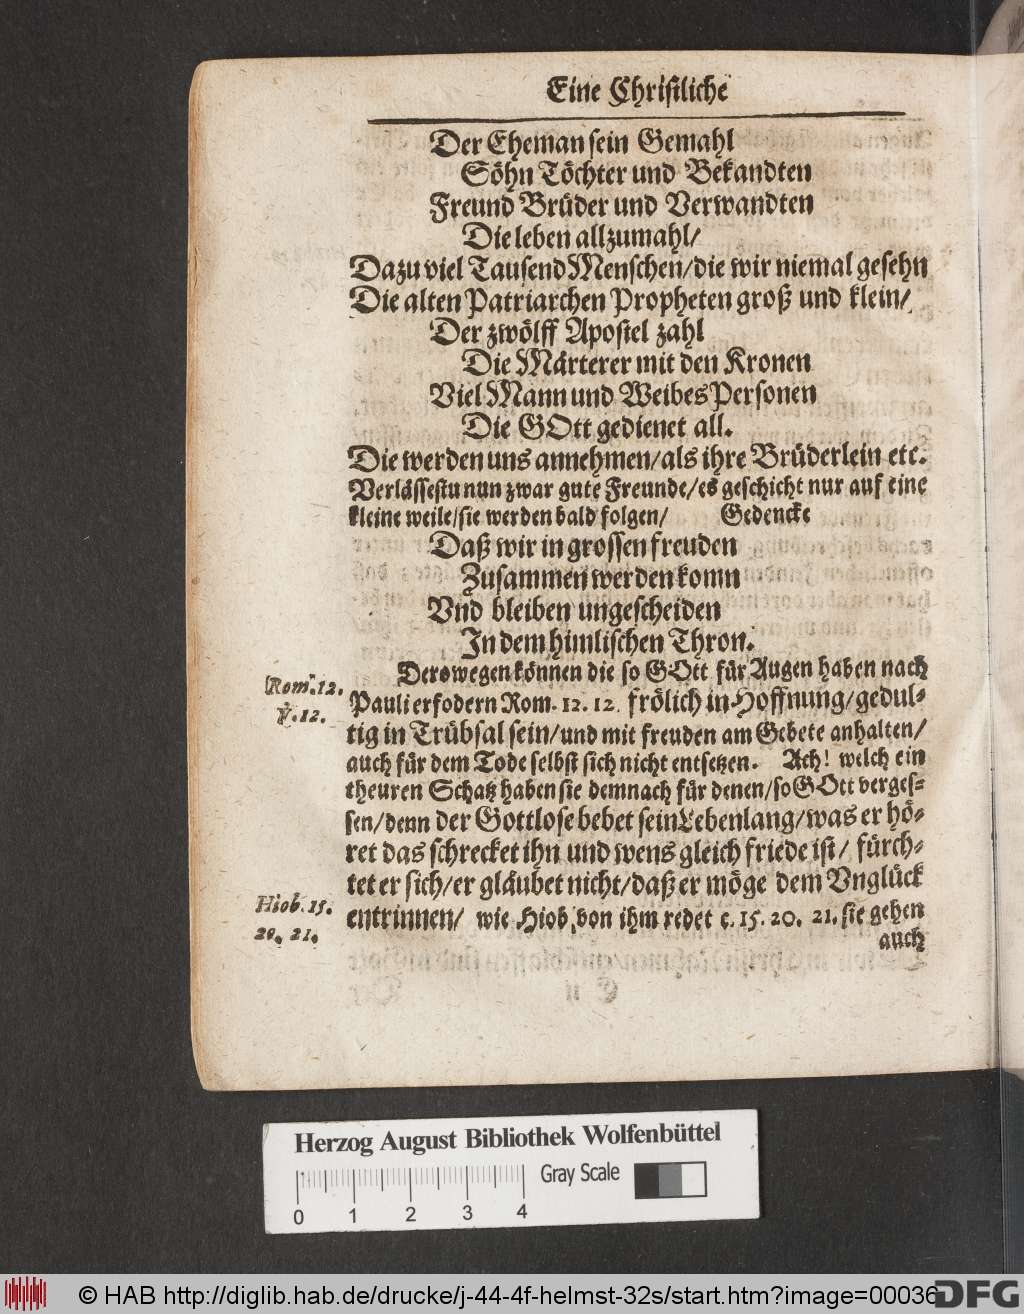 Eine Christliche
Der Eheman sein Gemahl
Söhn Töchter und Bekandten
Freund Brüder und Verwandten
Die leben allzumahl/
Dazu viel Tausend Menschen/die wir niemal gesehn
Die alten Patriarchen Propheten groß und klein/
Der zwölff Apostel zahl
Die Märterer mit den Kronen
Viel Mann und Weibes Personen
Die GOtt gedienet all.
Die werden uns annehmen/als ihre Brüderlein etc.
Verlässestu nun zwar gute Freunde/es geschicht nur auf eine
kleine weile/sie werden bald folgen/ Gedencke
Daß wir in grossen freuden
Zusammen werden komn
Vnd bleiben ungescheiden
In dem himlischen Thron.
Derowegen können die so GOtt für Augen haben nach
Rom. 12.
Pauli erfodern Rom. 12. 12. frölich in Hoffnung/gedul-
℣. 12.
tig in Trübsal sein/und mit freuden am Gebete anhalten/
auch für dem Tode selbst sich nicht entsetzen. Ach! welch ein
theuren Schatz haben sie demnach für denen/so GOtt verges-
sen/denn der Gottlose bebet sein Lebenlang/was er hö-
ret das schrecket ihn und wens gleich friede ist/ fürch-
tet er sich/er gläubet nicht/daß er möge dem Vnglück
Hiob. 15.
entrinnen/ wie Hiob von ihm redet c. 15. 20. 21. sie gehen
20. 21.
auch
Herzog August Bibliothek Wolfenbüttel
Gray Scale
0 1 2 3 4
© HAB http://diglib.hab.de/drucke/j-44-4f-helmst-32s/start.htm?image=00036
DFG